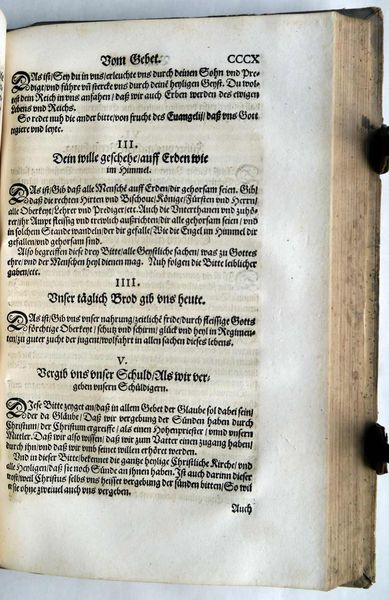 Vom Gebet. CCCX
DAs ist/Sey du in vns/erleuchte vns durch deinen Sohn vnd Pre-
digt/vnd führe vñ stercke vns durch deine heyligen Geyst. Du wol-
lest dein Reich in vns anfahen/ daß wir auch Erben werden des ewigen
Lebens vnd Reichs.
So redet nuh die ander bitte/von frucht des Euangelij/ daß vns Gott
regiere vnd leyte.
III.
Dein wille geschehe/auff Erden wie
im Himmel.
DAs ist/Gib daß alle Menschē auff Erden/dir gehorsam seien. Gib/
daß die rechten Hirten vnd Bischoue/Könige/Fürsten vnd Herrn/
alle Oberkeyt/Lehrer vnd Prediger/etc. Auch die Vnterthanen vnd zuhö-
rer/ihr Ampt fleissig vnd treülich außrichten/dir alle gehorsam seien/vnd
in solchem Stande wandeln/der dir gefalle/ Wie die Engel im Himmel dir
gefallen/vnd gehorsam sind.
Also begreiffen diese drey Bitte/alle Geystliche sachen/ was zu Gottes
ehre/vnd der Menschen heyl dienen mag. Nuh folgen die Bitte leiblicher
gaben/etc.
IIII.
Vnser täglich Brod gib vns heute.
DAs ist/Gib vns vnser nahrung/zeitliche fride/durch fleissige Gotts
förchtige Oberkeyt/schutz vnd schirm/glück vnd heyl in Regimen-
ten/zu guter zucht der jugent/wolfahrt in allen sachen dieses lebens.
V.
Vergib vns vnser Schuld/Als wir ver-
geben vnsern Schüldigern.
DJese Bitte zeyget an/daß in allem Gebet der Glaube sol dabei sein/
der da Gläube/ Daß wir vergebung der Sünden haben durch
Christum/der Christum ergreiffe/als einen Hohenpriester/vnnd vnsern
Mittler. Daß wir also wissen/ daß wir zum Vatter einen zugang haben/
durch ihn/vnd daß wir vmb seinet willen erhöret werden.
Vnd in dieser Bitte/bekennet die gantze heylige Christliche Kirche/vnd
alle Heyligen/daß sie noch Sünde an ihnen haben. Jst auch darinn dieser
trost/weil Christus selbs vns heisset vergebung der sünden bitten/So wil
er sie ohne zweiuel auch vns vergeben.
Auch